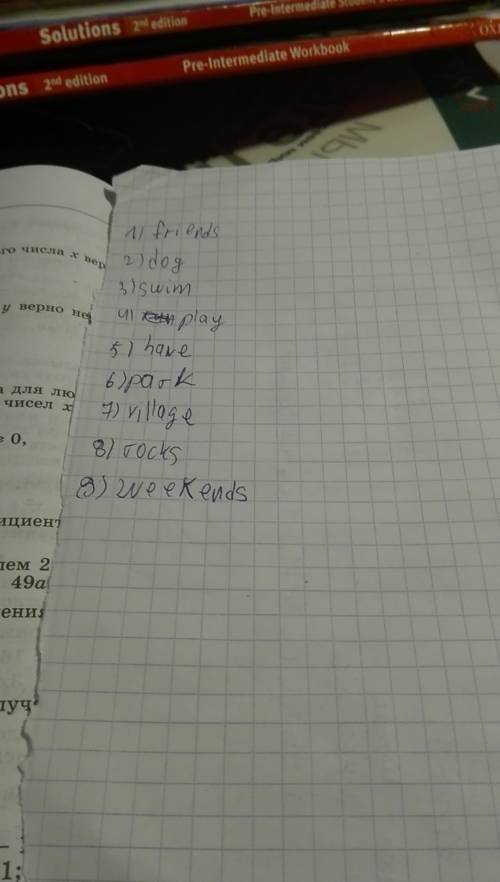 Pre-Intermediate Stude
Solutions 2nd edition
Pre-Intermediate Workbook
ons 2nd edition
МЫ
го числа x вер
у верно не
а для лю
чисел x
е 0,
ициент
лем 2
49a
ения
луч
1;
1) friends
2) dog
3) swim
4) play
5) have
6) park
7) village
8) rocks
9) weekends